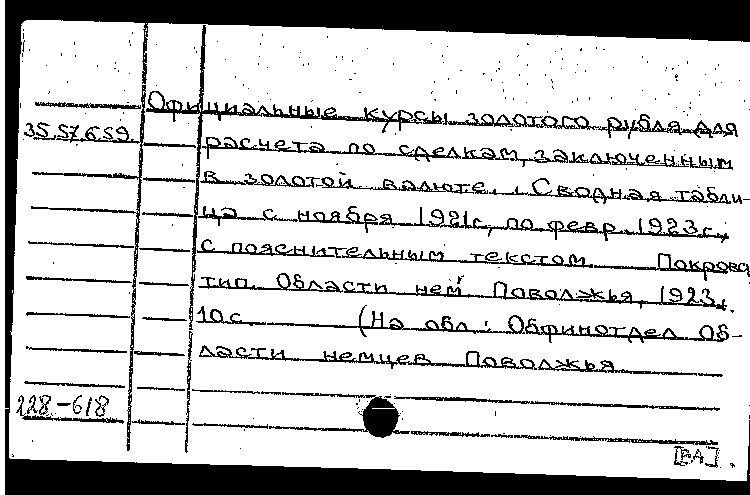 Официальные курсы золотого рубля для
35.57.659
расчета по сделкам, заключенным
в золотой валюте. Сводная табли-
ца с ноября 1921г. по февр. 1923г.,
с пояснительным текстом. Покровск
тип. Области нем. Поволжья, 1923г.
10с. (На обл.: Обфинотдел Об-
ласти немцев Поволжья
228-618
[ВА].